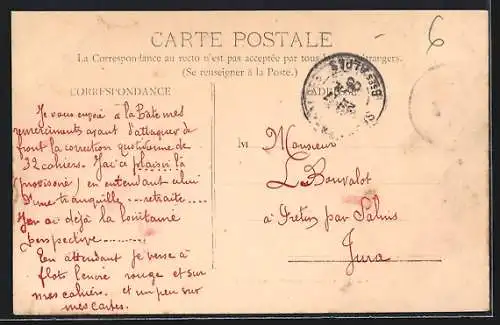 CARTE POSTALE
La Correspondance au recto n'est pas acceptée par tous les étrangers.
(Se renseigner à la Poste.)
CORRESPONDANCE
ADRESSE
6
BSES ALPES
Je vous envoie à la hâte mes
remerciments avant d'attaquer de
front la correction quotidienne de
32 cahiers. J'ai ce plaisir là
(provisoire) en entendant celui
d'une tranquille ... retraite....
J'en ai déjà la lointaine
perspective..........
En attendant je verse à
flots l'encre rouge et sur
mes cahiers. et un peu sur
mes cartes.
Monsieur
L. Bouvalot
à par Salins
Jura